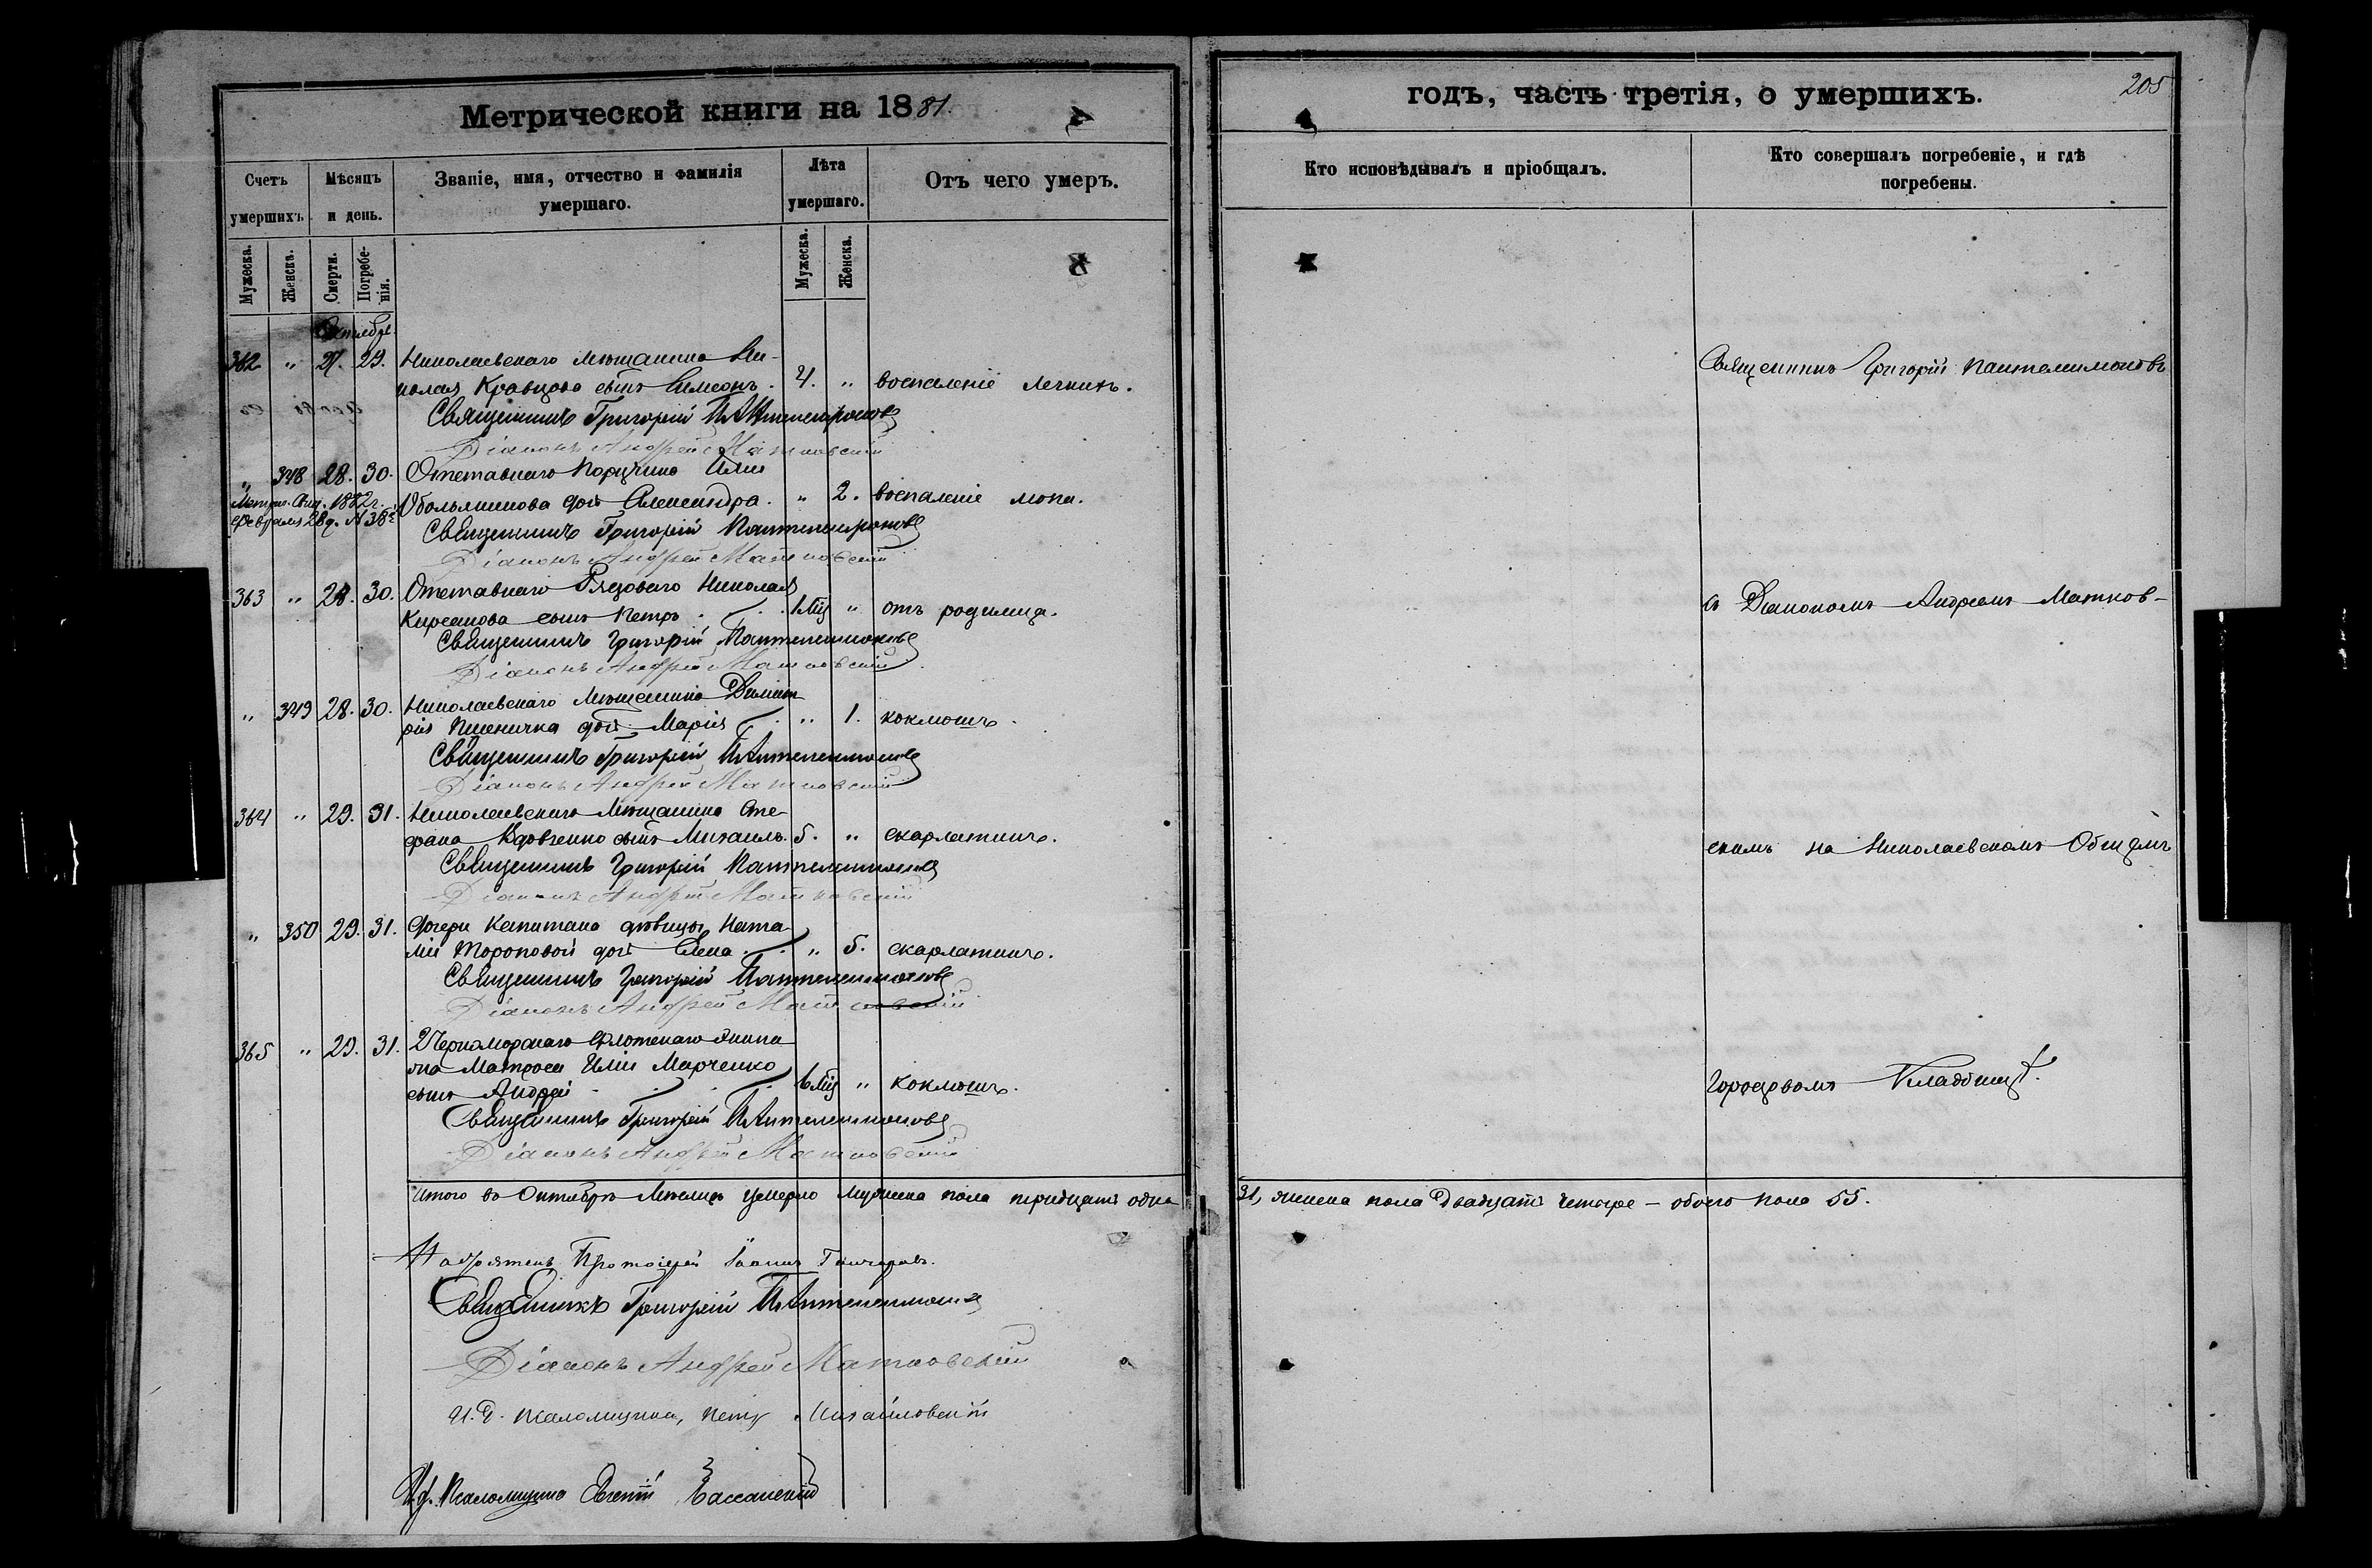 Метрической книги на 1881.
Счетъ умершихъ.
Мѣсяцъ и день.
Званіе, имя, отчество и фамилія умершаго.
Лѣта умершаго.
Отъ чего умеръ.
Мужеска.
Женска.
Смерти.
Погребенія.
Мужеска.
Женска.
Октябрь.
362 " 27. 29. Николаевскаго мѣщанина Ни-
колая Кравцова сынъ Симеонъ. 4. " воспаленіе легкихъ.
Священникъ Григорій Пантелеимоновъ
Діаконъ Андрей Матковскій
" 348 28. 30. Отставнаго поручика Иліи
Метрич. 1882 г.
Февраля 28 д. №
дочь Александра. " 2. воспаленіе мозга.
Священникъ Григорій Пантелеимоновъ
Діаконъ Андрей Матковскій
363 " 28. 30. Отставнаго Рядоваго Николая
Кирсанова сынъ Петръ " отъ родимца.
Священникъ Григорій Пантелеимоновъ
Діаконъ Андрей Матковскій
" 349 28. 30. Николаевскаго Мѣщанина Димит
рія Пшеничка дочь Марія " 1. коклюшъ.
Священникъ Григорій Пантелеимоновъ
Діаконъ Андрей Матковскій
364 " 29. 31. Николаевскаго Мѣщанина Сте-
фана Вдовенко сынъ Михаилъ. 5. " скарлатина.
Священникъ Григорій Пантелеимоновъ
Діаконъ Андрей Матковскій
" 350 29. 31. Дочери Капитана дѣвицы Ната
ліи Тороповой дочь Елена " 5. скарлатина.
Священникъ Григорій Пантелеимоновъ
Діаконъ Андрей Матковскій
365 " 29. 31. 2 Черноморскаго Флотскаго Экипа
жа Матроса Иліи Марченко
сынъ Андрей " коклюшъ.
Священникъ Григорій Пантелеимоновъ
Діаконъ Андрей Матковскій
Итого въ Октябрѣ Мѣсяцѣ умерло мужеска пола тридцать одна
Протоіерей Іоаннъ Гончаровъ.
Священникъ Григорій Пантелеимоновъ
Діаконъ Андрей Матковскій
И. д. псаломщика, Петръ Михайловскій
И. д. Псаломщика Евгеній
годъ, часть третія, о умершихъ.
205
Кто исповѣдывалъ и пріобщалъ.
Кто совершалъ погребеніе, и гдѣ погребены.
Священникъ Григорій Пантелеимоновъ
съ Діакономъ Андреемъ Матков-
скимъ на Николаевскомъ Общемъ
Городовомъ Кладбищѣ.
31, женска пола двадцать четыре – обоего пола 55.